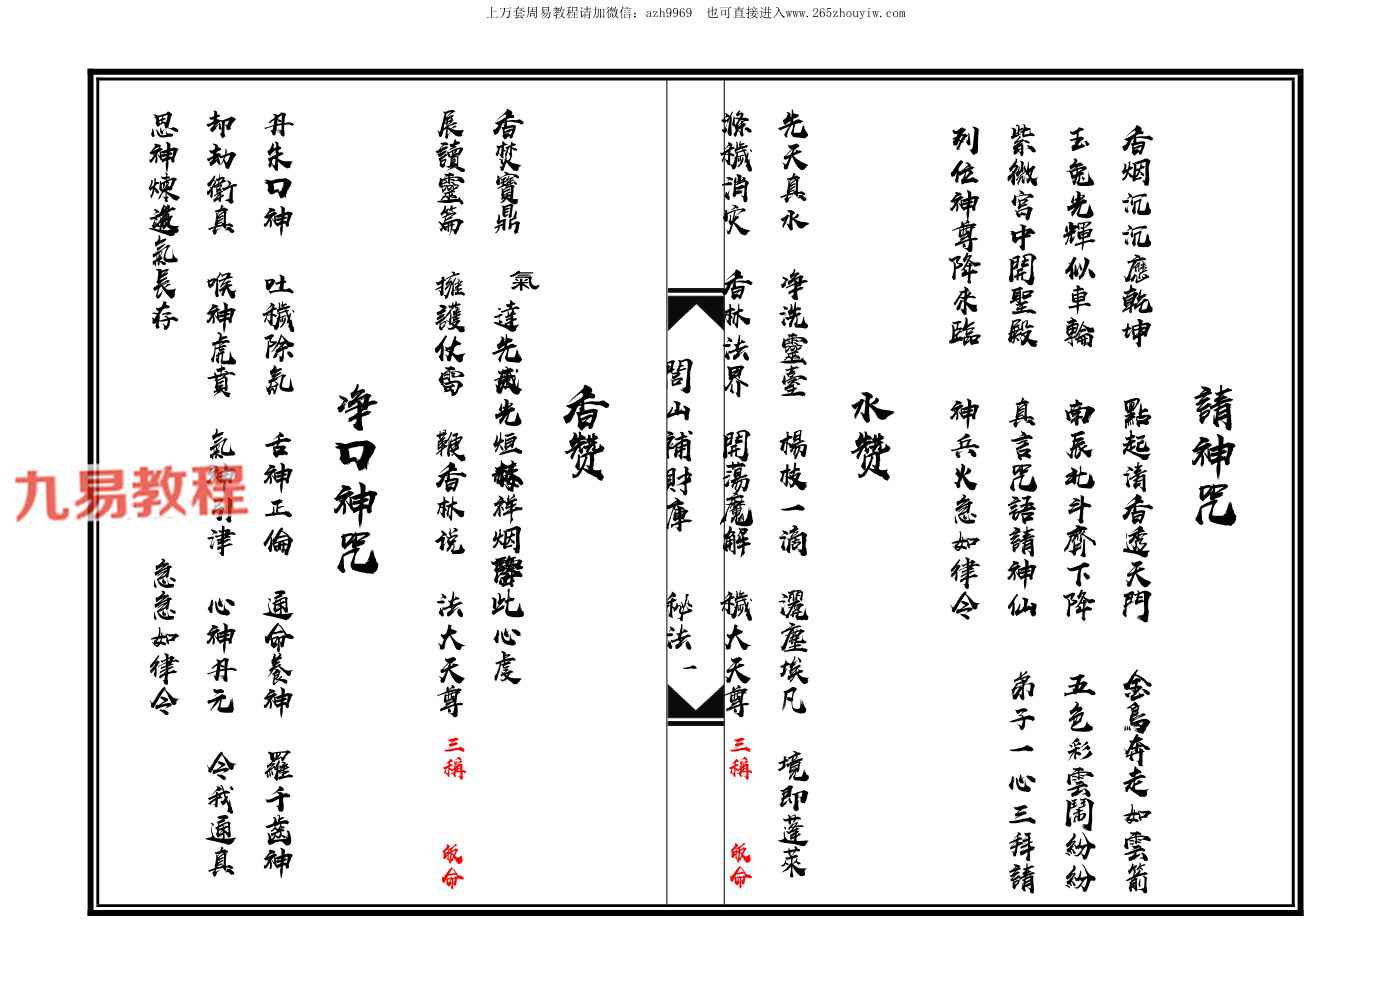 上万套周易教程请加微信：azh9969　也可直接进入www.265zhouyiw.com
請神咒
香烟沉沉應乾坤　點起清香透天門　金鳥奔走如雲箭
玉兔光輝似車輪　南辰北斗齊下降　五色彩雲鬧紛紛
紫微宮中開聖殿　真言咒語請神仙　弟子一心三拜請
列位神尊降來臨　神兵火急如律令
水赞
先天真水　净洗靈臺　楊枝一滴　灑塵埃凡　境即蓬萊
滌穢消灾　香林法界　開蕩魔解　穢大天尊　三稱　皈命
閭山補財庫　秘法　一
香赞
香焚寶鼎　氣達先 光烜 祥烟 此心虔
展讀靈篇　擁護仗雷　鞭香林说　法大天尊　三稱　皈命
净口神咒
丹朱口神　吐穢除氣　舌神正倫　通命養神　羅千齒神
却劫衛真　喉神虎賁　氣神引津　心神丹元　令我通真
思神煉 氣長存　急急如律令
九易教程